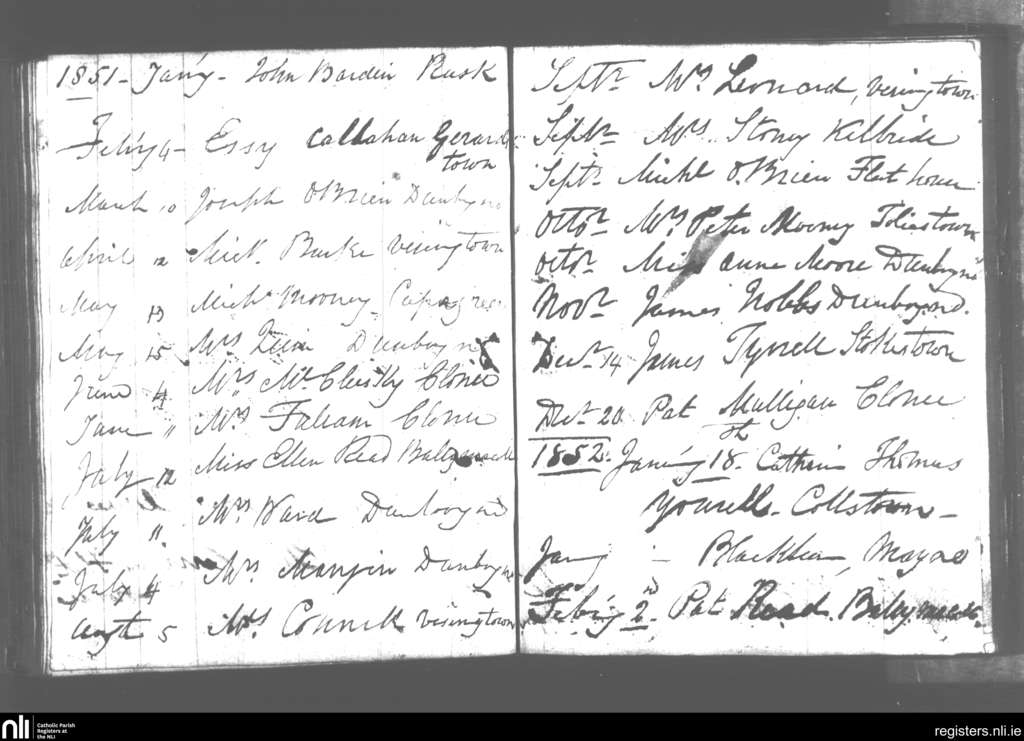 1851 - Jan'y - John Bardin Rusk
Feb'y 4 - Essy Callahan Gerards
town
March 10 Joseph O'Brien Dunboyne
April 12 Mick. Burke Vesingtown
May 13 Mich'l Mooney
May 15 Mrs Quin Dunboyne
June 4 Mrs Mc Clusky Clonee
June " Mrs Clonee
July 12 Miss Ellen Read
July 11. Mrs Ward Dunboyne
July 4 Mrs Mangin Dunboyne
Augt 5 Mrs Connick Vesingtown
Septr Mrs Leonard, Vesingtown
Septr Mrs Stoney Kilbride
Septr Michl O.Brien Flat house
Octor Mrs Peter Mooney Toliestown
Octor Miss Anne Moore Dunboyne
Novr James Nobbs Dunboyne.
Decr 14 James Tyrrell Stokestown
Decr 20 Pat Mulligan Clonee
1852. Jan'y 18th Cathrin Thomas
Yourell - Collstown -
Jany - Mayne
Feb'y 2nd Pat Read.
nli Catholic Parish
Registers at
the NLI
registers.nli.ie